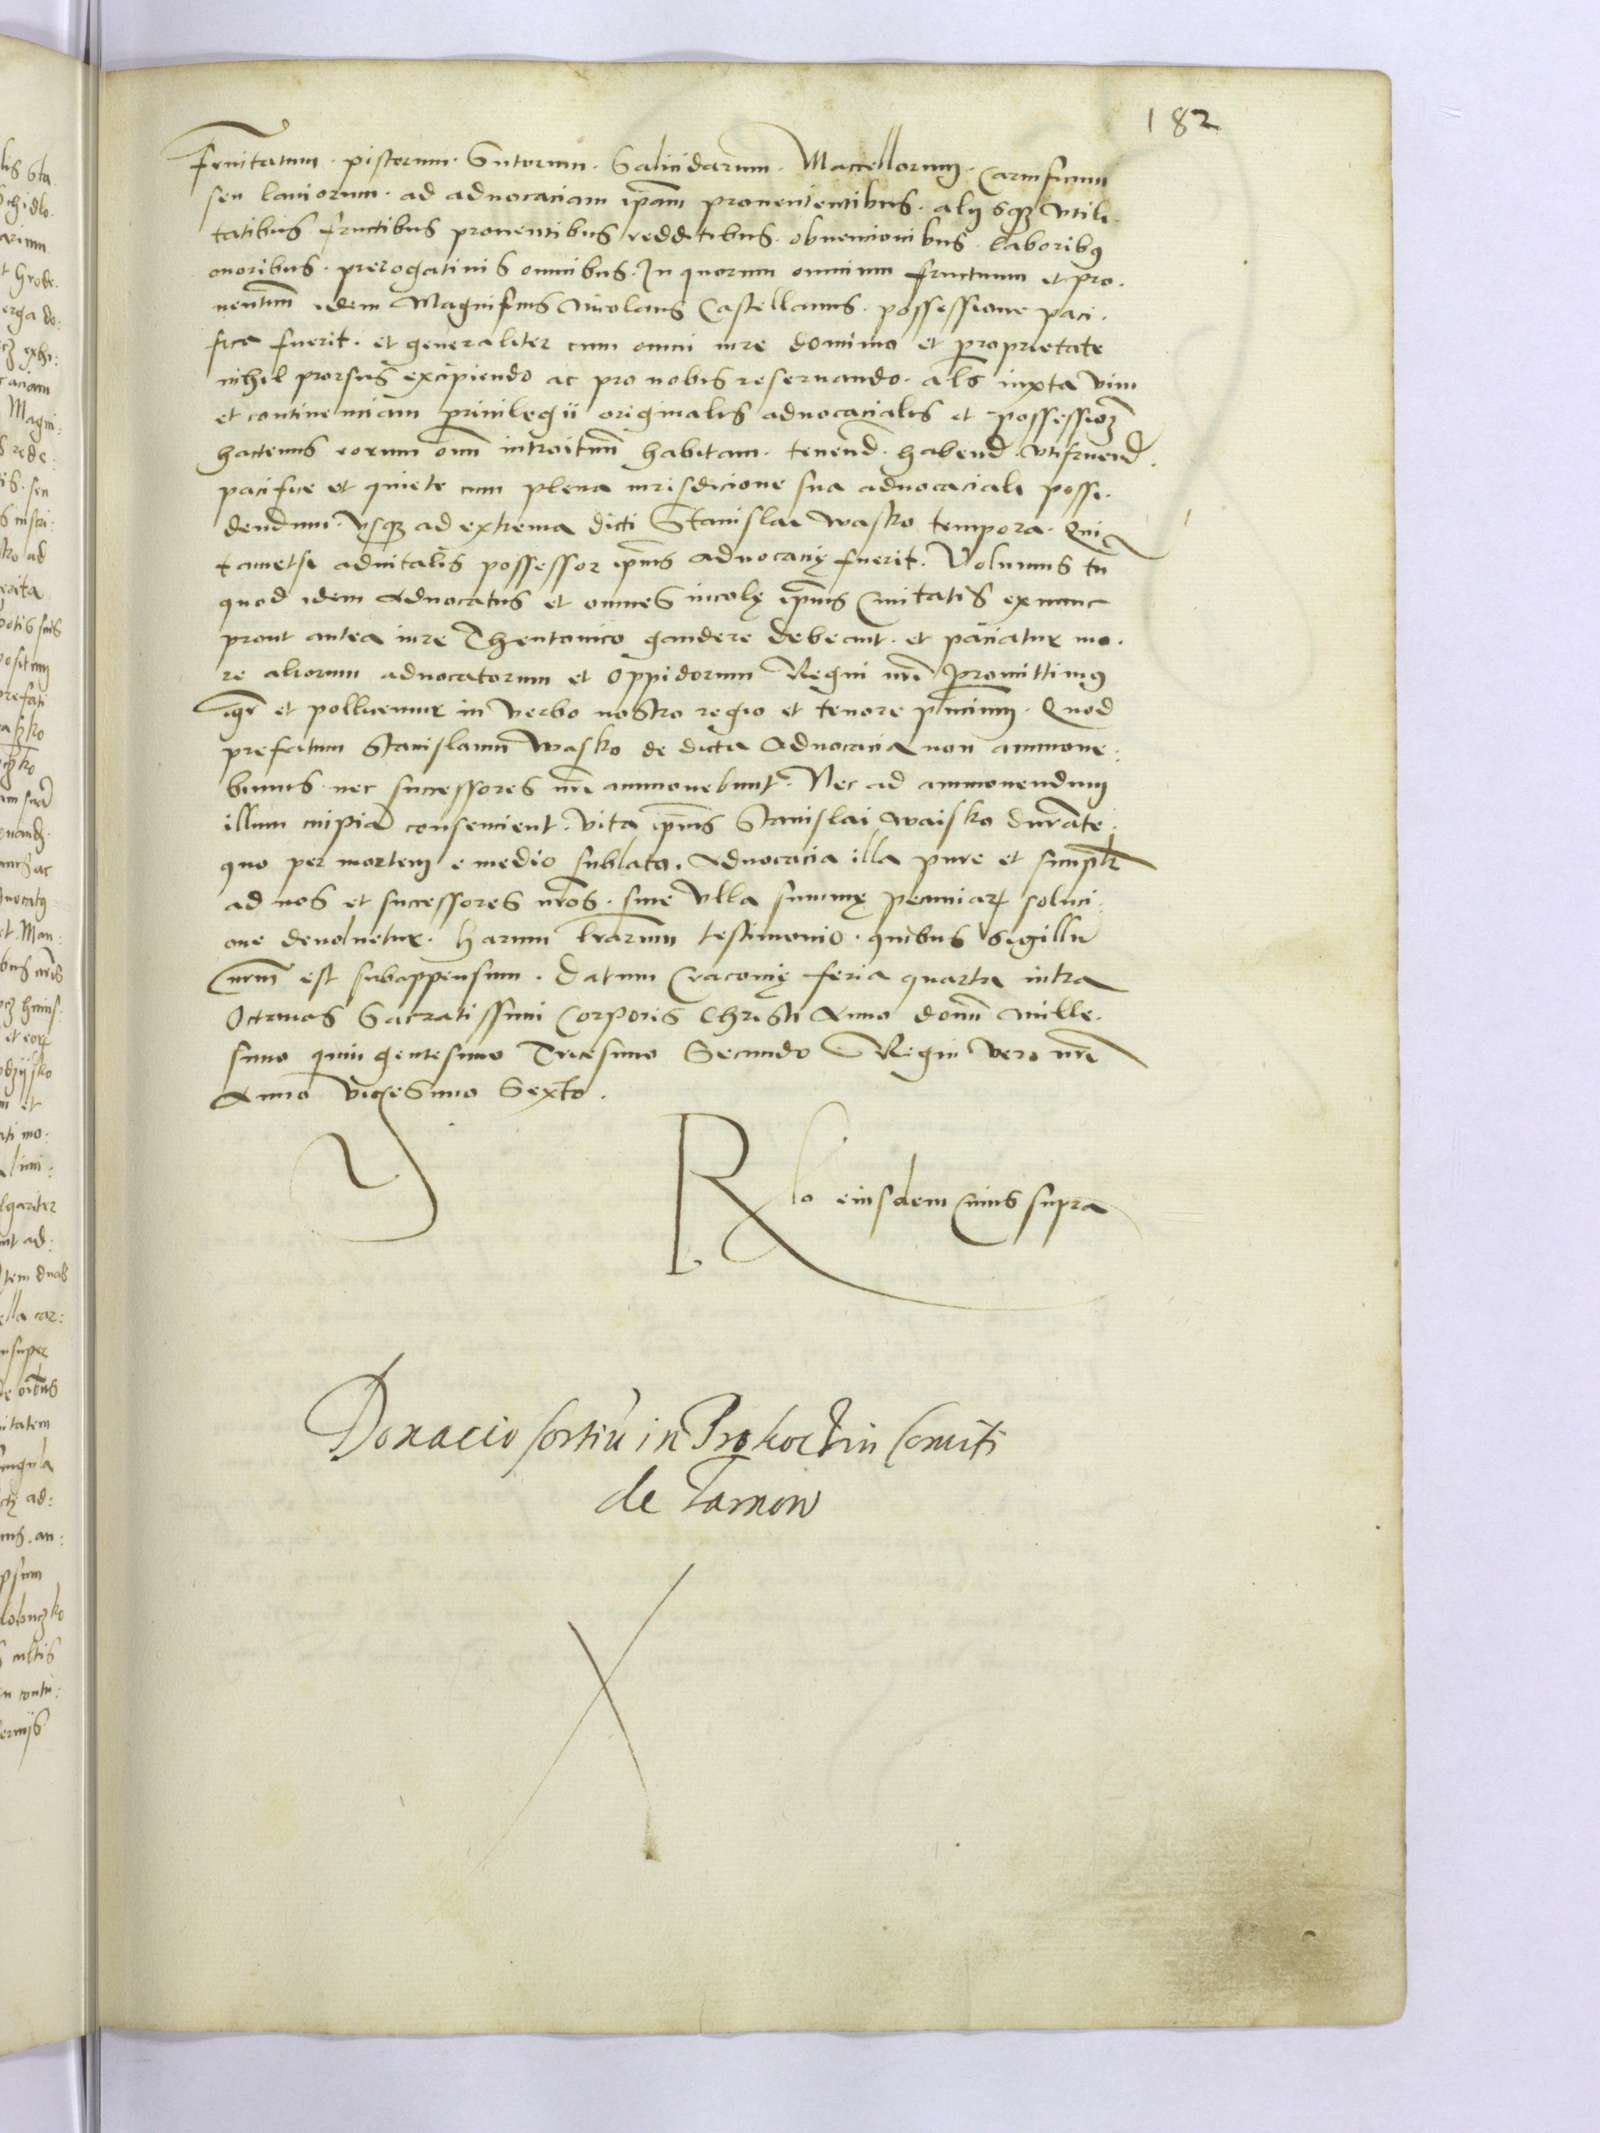 182
fruitatum · pistorum · Sutorum · Salicidarum · Macellorum · Carnificum
seu laniorum · ad advocaciam ipam provenientibus · alijsque utili·
tatibus fructibus proventibus redditibus · obvencionibus · laboribus
onoribus · prerogativis omnibus · In quorum omnium fructuum et pro·
ventuum idem Magnificus Nicolaus Castellanus · possessione paci·
fica fuerit · et generaliter cum omni iure dominio et proprietate
nihil prorsus excipiendo ac pro nobis reservando · als iuxta vim
et continenciam privilegii originalis advocacialis et possessionem
hactenus eorum omnium introituum habitam · tenend · habend · utifruend ·
pacifice et quiete cum plena iurisdicione sua advocaciali possi·
dendum · usque ad extrema dicti Stanislai Wasko tempora · Qui
tametsi advitalis possessor ipsius advocacię fuerit · Volumus tn
quod idem Advocatus et omnes incolę ipsius Civitatis ex nunc
prout antea iure Theutonico gaudere debeant · et paciatur mo·
re aliorum advocatorum et oppidorum Regni nri Promittimus
igr et pollicemur in verbo nostro regio et tenore pncium · Quod
prefatum Stanislaum Wasko de dicta Advocacia non ammove·
bimus · nec successores nri ammovebunt · Nec ad ammovendum
illum cuipiam consencient · vita ipsius Stanislai Waisko durante ·
quo per mortem e medio sublato · Advocacia illa pure et simplr
ad nos et successores nros · sine ulla summę pecuniarum soluci·
one devolvetur · Harum lrarum testimonio · quibus Sigillum
nrum est subappensum · Datum Cracovię feria quarta intra
Octavas Sacratissimi Corporis Christi Anno domini Mille·
simo quingentesimo Tricesimo Secundo Regni vero nri
Anno Vicesimo Sexto ·
Rlo eiusdem cuius supra
Donacio sortiu in Prokoczin Comiti
de Tarnow